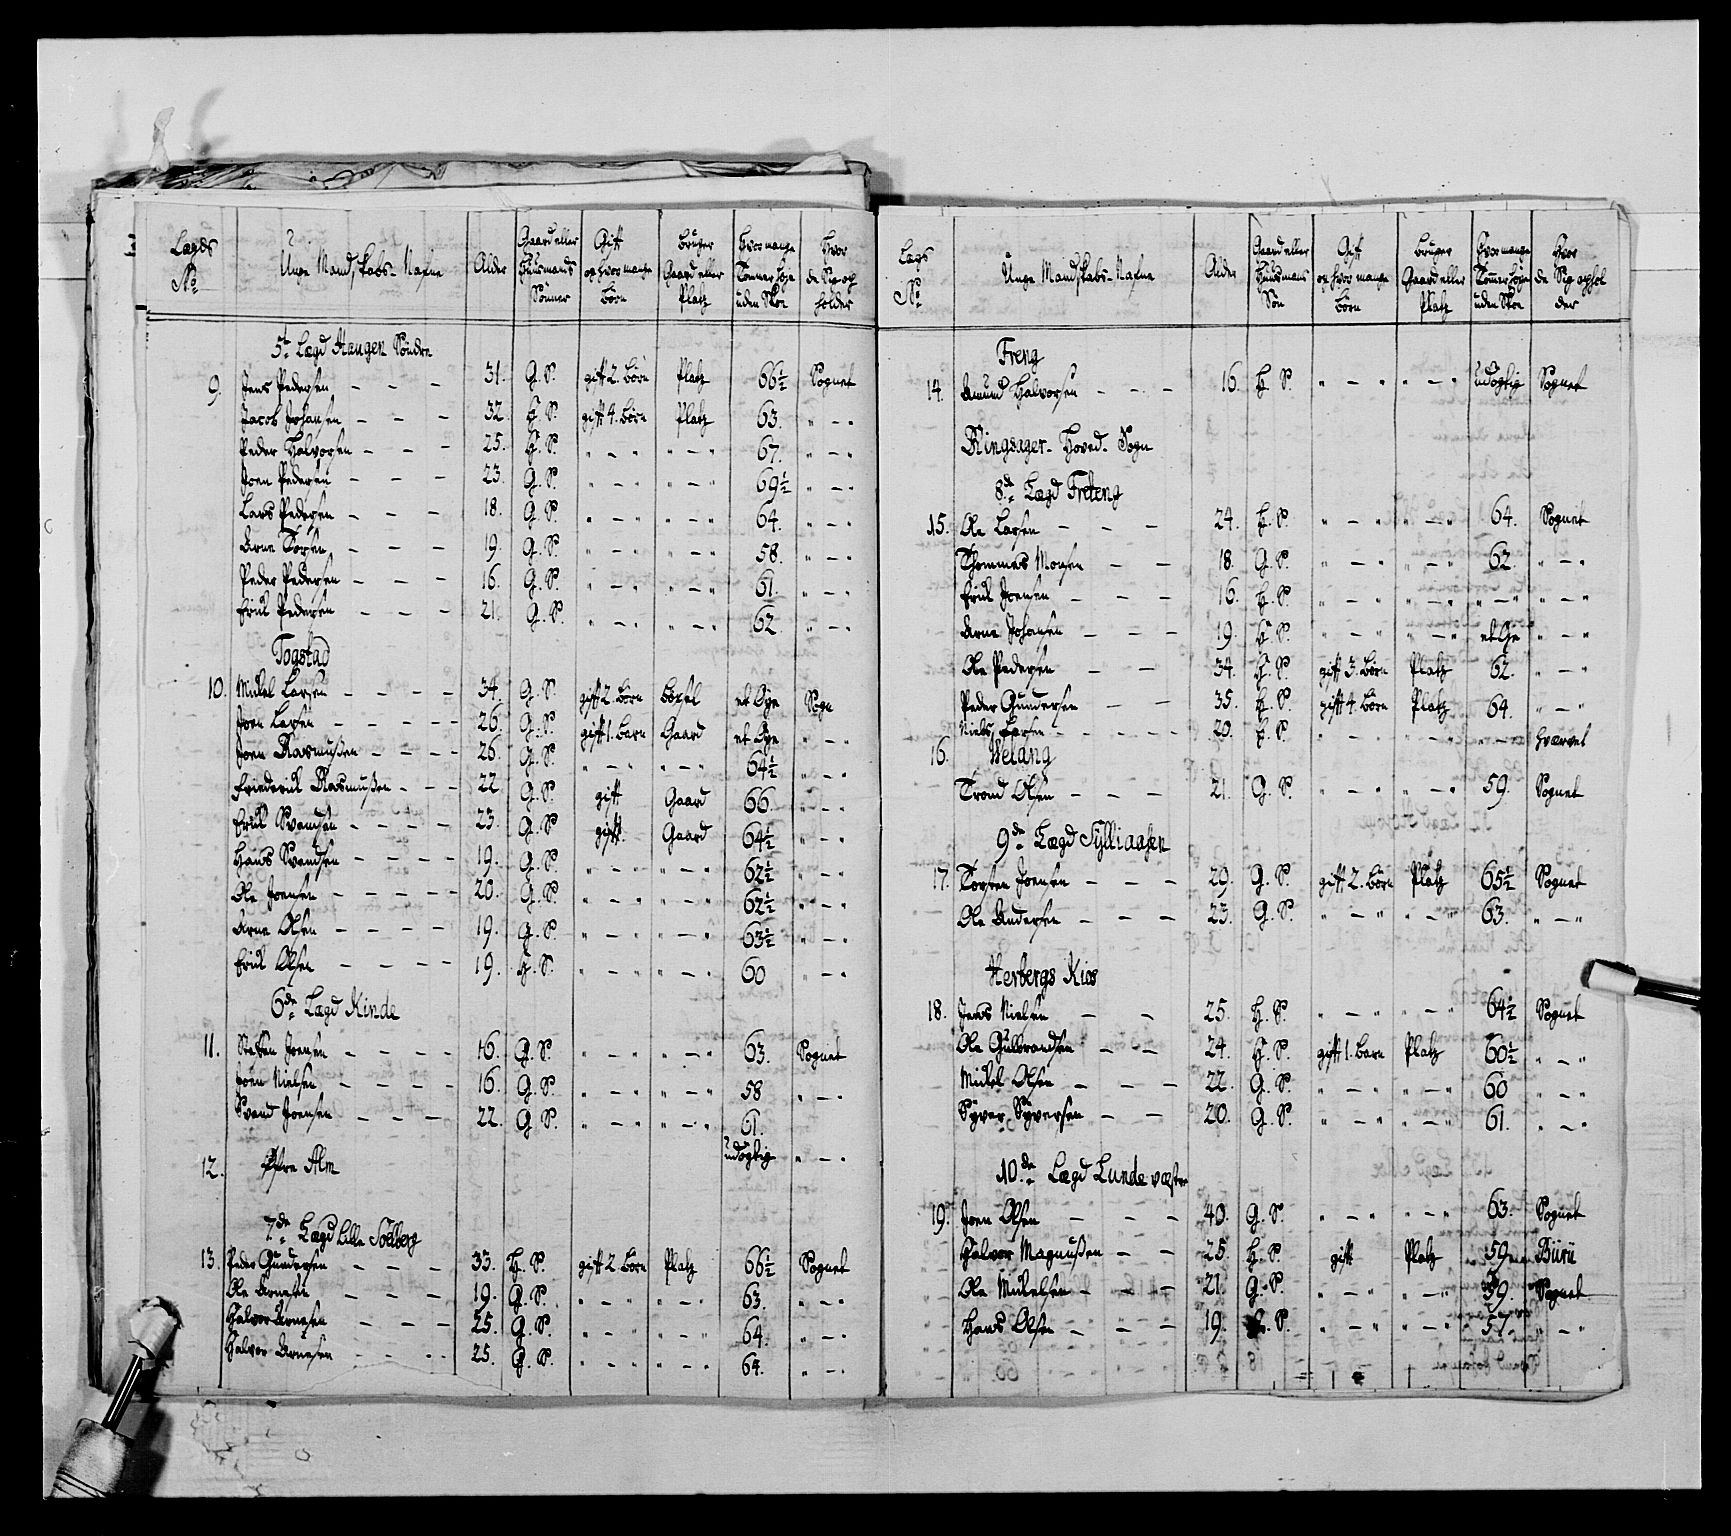 Lægds No | Unge Mandskabs-Nafne | Alder | Gaard eller Huusmands Sønner | Gift og hvor mange børn | bruger Gaard eller Platz | Hvor mange Tommer høje uden Skoe | Hvor de Sig op holder
5te Lægd Haugen Søndre
9. Jens Pedersen — — — 31. G. S. gift 2. børn Platz 66½ Sognet
Jacob Johansen — — — 32. H. S. gift 4. børn Platz 63. " — "
Peder Halvorsen — — — 25. H. S. " — " " — " 67. " — "
Joen Pedersen — — — 23. G. S. " — " " — " 69½ " — "
Lars Pedersen — — — 18. G. S. " — " " — " 64. " — "
Arne Torsen — — — 19. G. S. " — " " — " 58. " — "
Peder Pedersen — — — 16. G. S. " — " " — " 61. " — "
Erick Pedersen — — — 21. G. S. " — " " — " 62 " — "
Togstad
10. Mickel Larsen — — — 34. G. S. gift 2. børn böxel et Øye Sogn
Joen Larsen — — — 26. G. S. gift 1. barn Gaard et Øye " — "
Joen Rasmußen — — — 26. G. S. " — " " — " 64½ " — "
Friederick Rasmußen — — — 22. G. S. gift Gaard 66. " — "
Erick Svendsen — — — 23. G. S. gift Gaard 64½ " — "
Hans Svendsen — — — 19. G. S. " — " " — " 62½ " — "
Ole Joensen — — — 20. G. S. " — " " — " 62½ " — "
Arne Olsen — — — 19. G. S. " — " " — " 63½ " — "
Erick Olsen — — — 19. H. S. " — " " — " 60 " — "
6de Lægd Kinde
11. Steffen Joensen — — — 16. G. S. " — " " — " 63. Sognet
Joen Nielsen — — — 16. G. S. " — " " — " 58 " — "
Svend Joensen — — — 22. G. S. " — " " — " 61.
12. Øfre Alm udögtig " — "
7de Lægd Lille Soelberg
13. Peder Gundersen — — — 33. H. S. gift 2. børn Platz 66½ Sognet
Ole Arnesen — — — 19. G. S. " — " " — " 63. " — "
Halvor Arnesen — — — 25. G. S. " — " " — " 64. " — "
Halvor Arnesen — — — 25. G. S. " — " " — " 64. " — "
Lægs No | Unge Mandskabs-Nafne | Alder | Gaard eller Huusmans Søn | Gift og hvor mange børn | bruger Gaard eller Platz | Hvor mange Tommer høje uden Skoe | Hvor de Sig ophol der
Freng
14. Amund Halvorsen — — — 16. H. S. " — " " — " udögtig Sognet
Ringsager Hoved-Sogn
8de Lægd Freteng
15. Ole Larsen — — — 24. H. S. " — " " — " 64. Sognet
Thommas Monsen — — 18. G. S. " — " " — " 62. " — "
Erick Joensen — — — 16. H. S. " — " " — " " — " " — "
Arne Johansen — — — 19. H. S. " — " " — " et Øye " — "
Ole Pedersen — — 34. H. S. gift 3. børn Platz 62. " — "
Peder Gundersen — — 35. H. S. gift 4. børn Platz 64. " — "
Niels Larsen — — — 20. H. S. " — " " — " " — " hværvet
16. Velang
Trond Olsen — — — 21. G. S. " — " " — " 59. Sognet
9de Lægd Sylliaasen
17. Torsten Joensen — — — 29. G. S. gift 2. børn Platz 65½ Sognet
Ole Andersen — — — 23. G. S. " — " " — " 63. " — "
Herbergs Kios
18. Jens Nielsen — — 25. H. S. " — " " — " 64½ Sognet
Ole Gulbrandsen — — 24. H. S. gift 1. barn Platz 60½ " — "
Mickel Olsen — — — 22. G. S. " — " " — " 60 " — "
Syver Syversen — — 20. G. S. " — " " — " 61. " — "
10de Lægd Lunde væster
19. Joen Olsen — — — 40. G. S. " — " " — " 63. Sognet
Halvor Magnußen — — 25. H. S. gift Platz 59 Biirü
Ole Mickelsen — — — 21. G. S. " — " " — " 59. Sognet
Hans Olsen — — — 19. G. S. " — " " — " 57. " — "